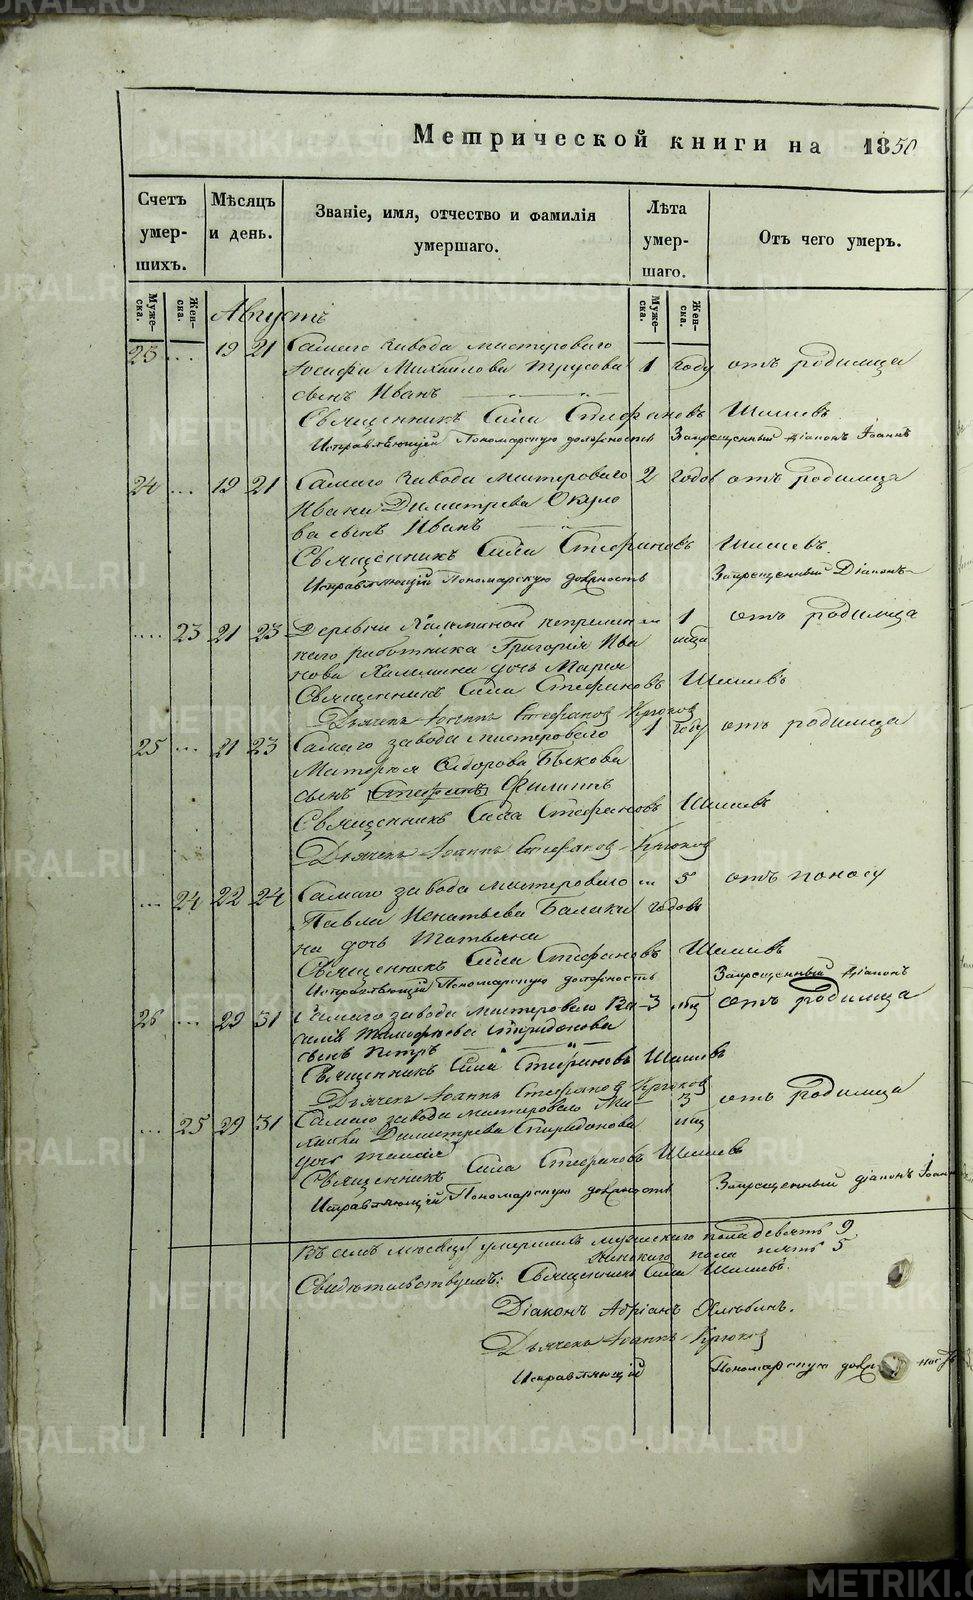 Метрической книги на 1850
Счетъ умершихъ.
Мѣсяцъ и день.
Званіе, имя, отчество и фамилія умершаго.
Лѣта умершаго.
Отъ чего умеръ.
Мужеска.
Женска.
Мужеска.
Женска.
Августъ
23 ... 19 21 Самаго завода мастероваго 1 году отъ родимца
Іосифа Михайлова Трусова
сынъ Иванъ
Священникъ Сила Стефановъ Шишевъ
Исправляющій Пономарскую должность Запрещенный Діаконъ Іоаннъ
24 ... 19 21 Самаго завода мастероваго 2 годов отъ родимца
Ивана Димитрева Окуло
ва сынъ Иванъ
Священникъ Сила Стефановъ Шишевъ.
Исправляющій Пономарскую должность Запрещенный Діаконъ
.... 23 21 23 Деревни непремен 1 отъ родимца
наго работника Григорія Ива мца
нова дочь Марія
Священникъ Сила Стефановъ Шишевъ
Дьячекъ Іоаннъ Стефанов Крюков
25 ... 21 23 Самаго завода мастероваго 1 году отъ родимца
Сидорова Быкова
сынъ Стефанъ Филиппъ
Священникъ Сила Стефановъ Шишевъ
Дьячекъ Іоаннъ Стефанов Крюков
... 24 22 24 Самаго завода мастероваго 5 отъ поносу
Павла Игнатьева Балаки годовъ
на дочь Татьяна
Священникъ Сила Стефановъ Шишевъ
Исправляющій Пономарскую должность Запрещенный Діаконъ
26 ... 29 31 Самаго завода мастероваго Ва 3 мц отъ родимца
силія Тимофѣева Спиридонова
сынъ Петръ
Священникъ Сила Стефановъ Шишевъ
Дьячекъ Іоаннъ Стефанов Крюков
... 25 29 31 Самаго завода мастероваго 3 отъ родимца
Димитрева Спиридонова мц
дочь Таисія
Священникъ Сила Стефановъ Шишевъ
Исправляющій Пономарскую должность Запрещенный діаконъ Іоаннъ
Въ семъ месяцѣ умершихъ мужескаго пола девять 9
женскаго пола пять 5
Свидетельствуемъ: Священникъ Сила Шишевъ.
Діаконъ Адріанъ Хлѣбинъ.
Дьячекъ Іоаннъ Крюков
Исправляющій Пономарскую должность
METRIKI.GASO-URAL.RU